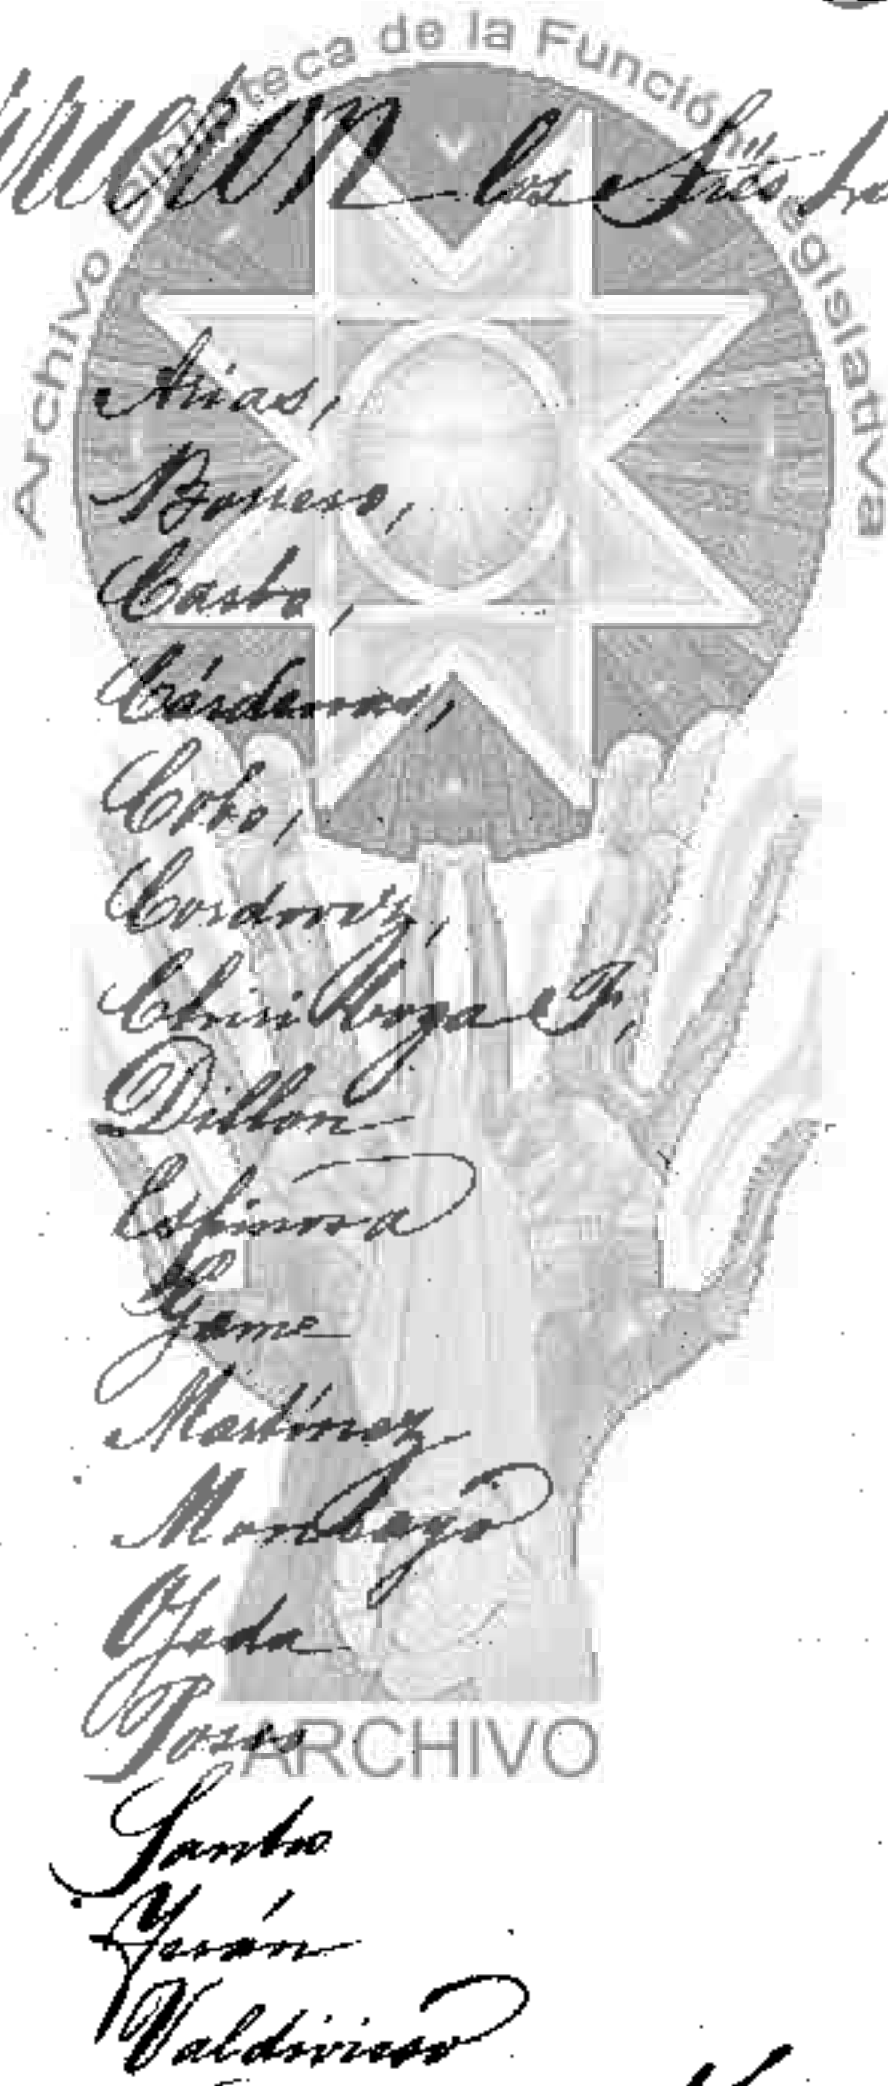 Archivo Biblioteca de la Función Legislativa
los Sres
Arias,
Borrero,
Castro,
Cárdenas,
Cobo,
Cordovez,
Chiriboga F,
Dillon
Espinosa
Game
Martínez
Moncayo
Ojeda
Santos
Terán
Valdivieso
ARCHIVO